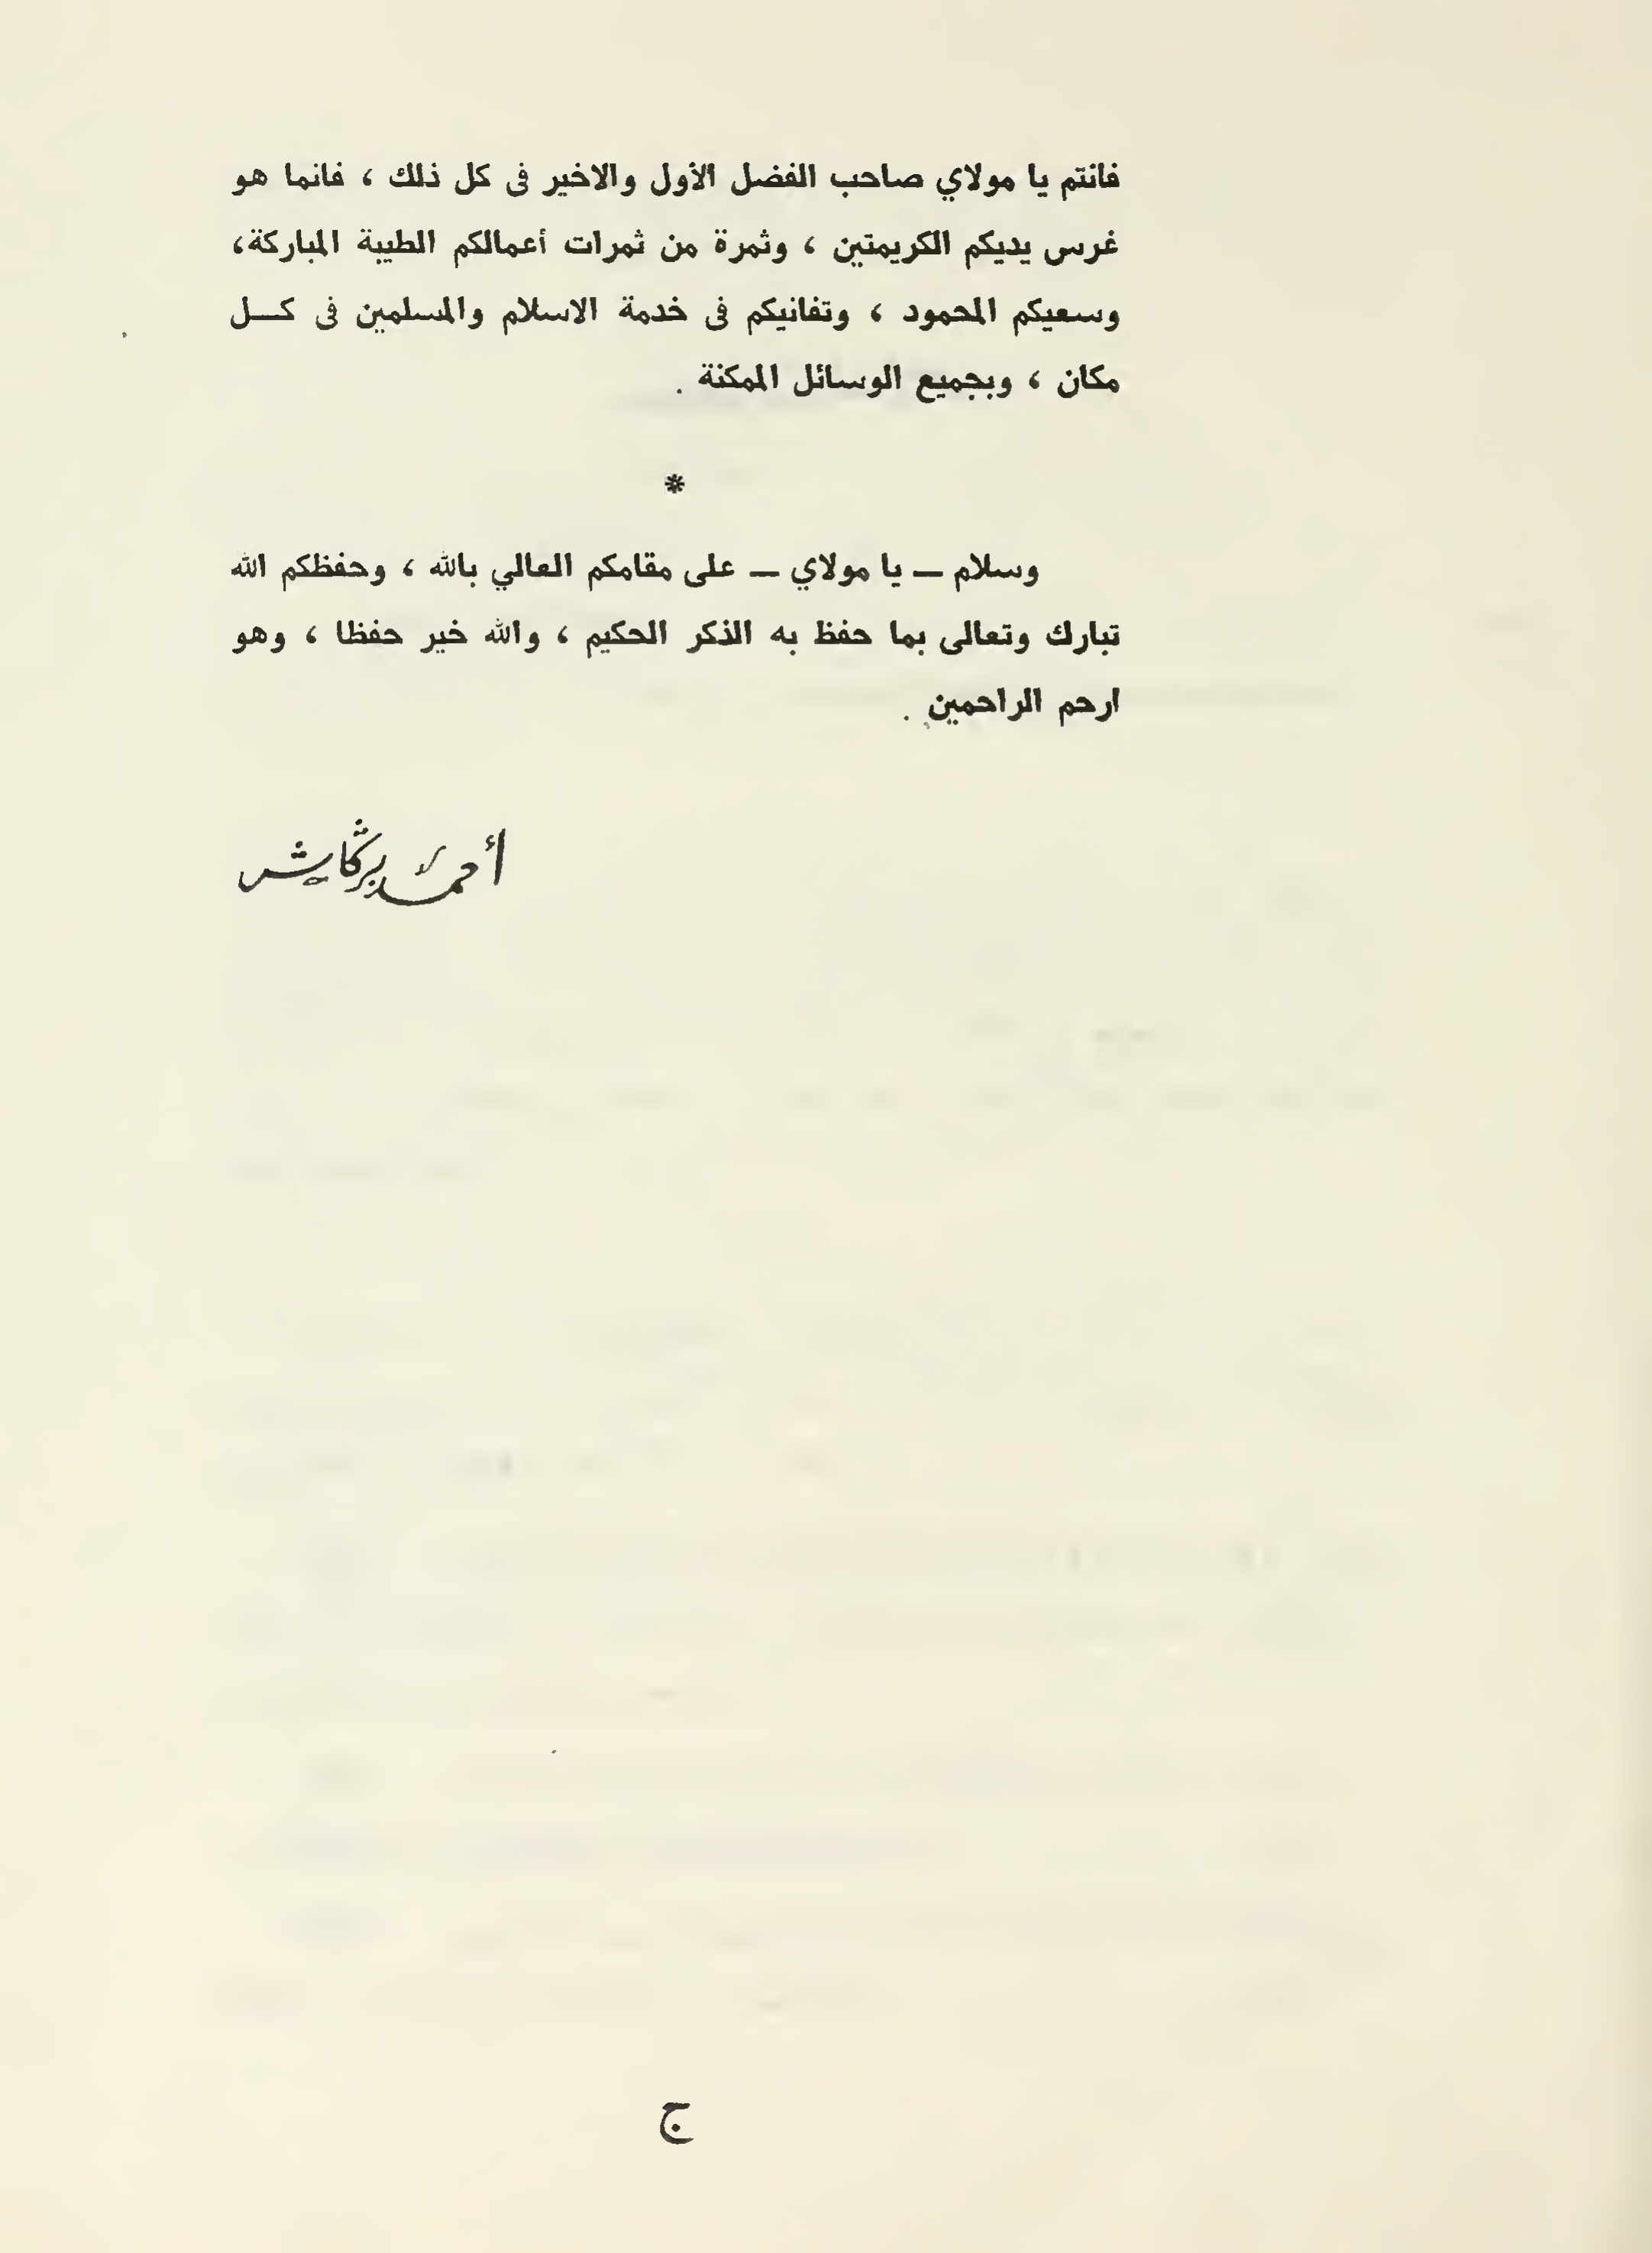 فانتم يا مولاي صاحب الفضل الأول والاخير فى كل ذلك ، فانما هو
غرس يديكم الكريمتين ، وثمرة من ثمرات أعمالكم الطيبة المباركة،
وسعيكم المحمود ، وتفانيكم فى خدمة الاسلام والمسلمين فى كـــل
مكان ، وبجميع الوسائل الممكنة .
*
وسلام — يا مولاي — على مقامكم العالي بالله ، وحفظكم الله
تبارك وتعالى بما حفظ به الذكر الحكيم ، والله خير حفظا ، وهو
ارحم الراحمين .
أحمد برڭاش
ج